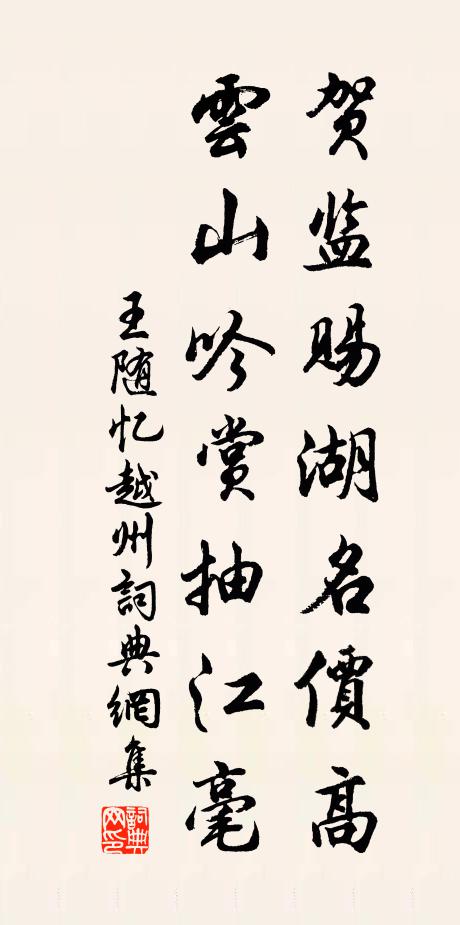 贺监赐湖名價高
雲山吟赏抽江毫
王随忆越州詞典網集
詞典网印